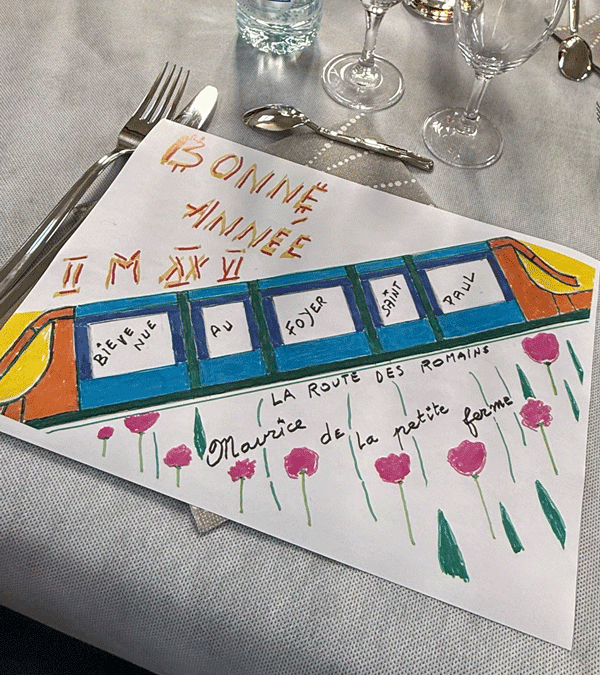 BONNE
ANNÉE
II M XX VI
BIEVE NUE AU FOYER SAINT PAUL
LA ROUTE DES ROMAINS
Maurice de la petite ferme